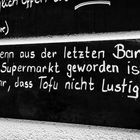 enn aus der letzten Bar
Supermarkt geworden is
hr, dass Tofu nicht Lustig